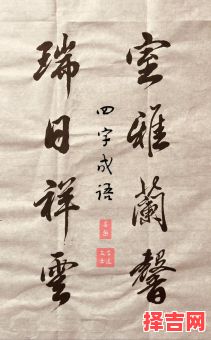 室雅蘭馨
四字成语
瑞日祥雲
择吉网